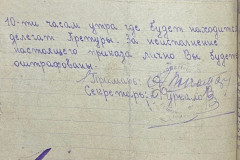 10-ти часам утра где будет находится
делегат Претуры. За неисполнение
настоящего приказа лично Вы будете
оштрафованы.
Примарь:
Секретарь: